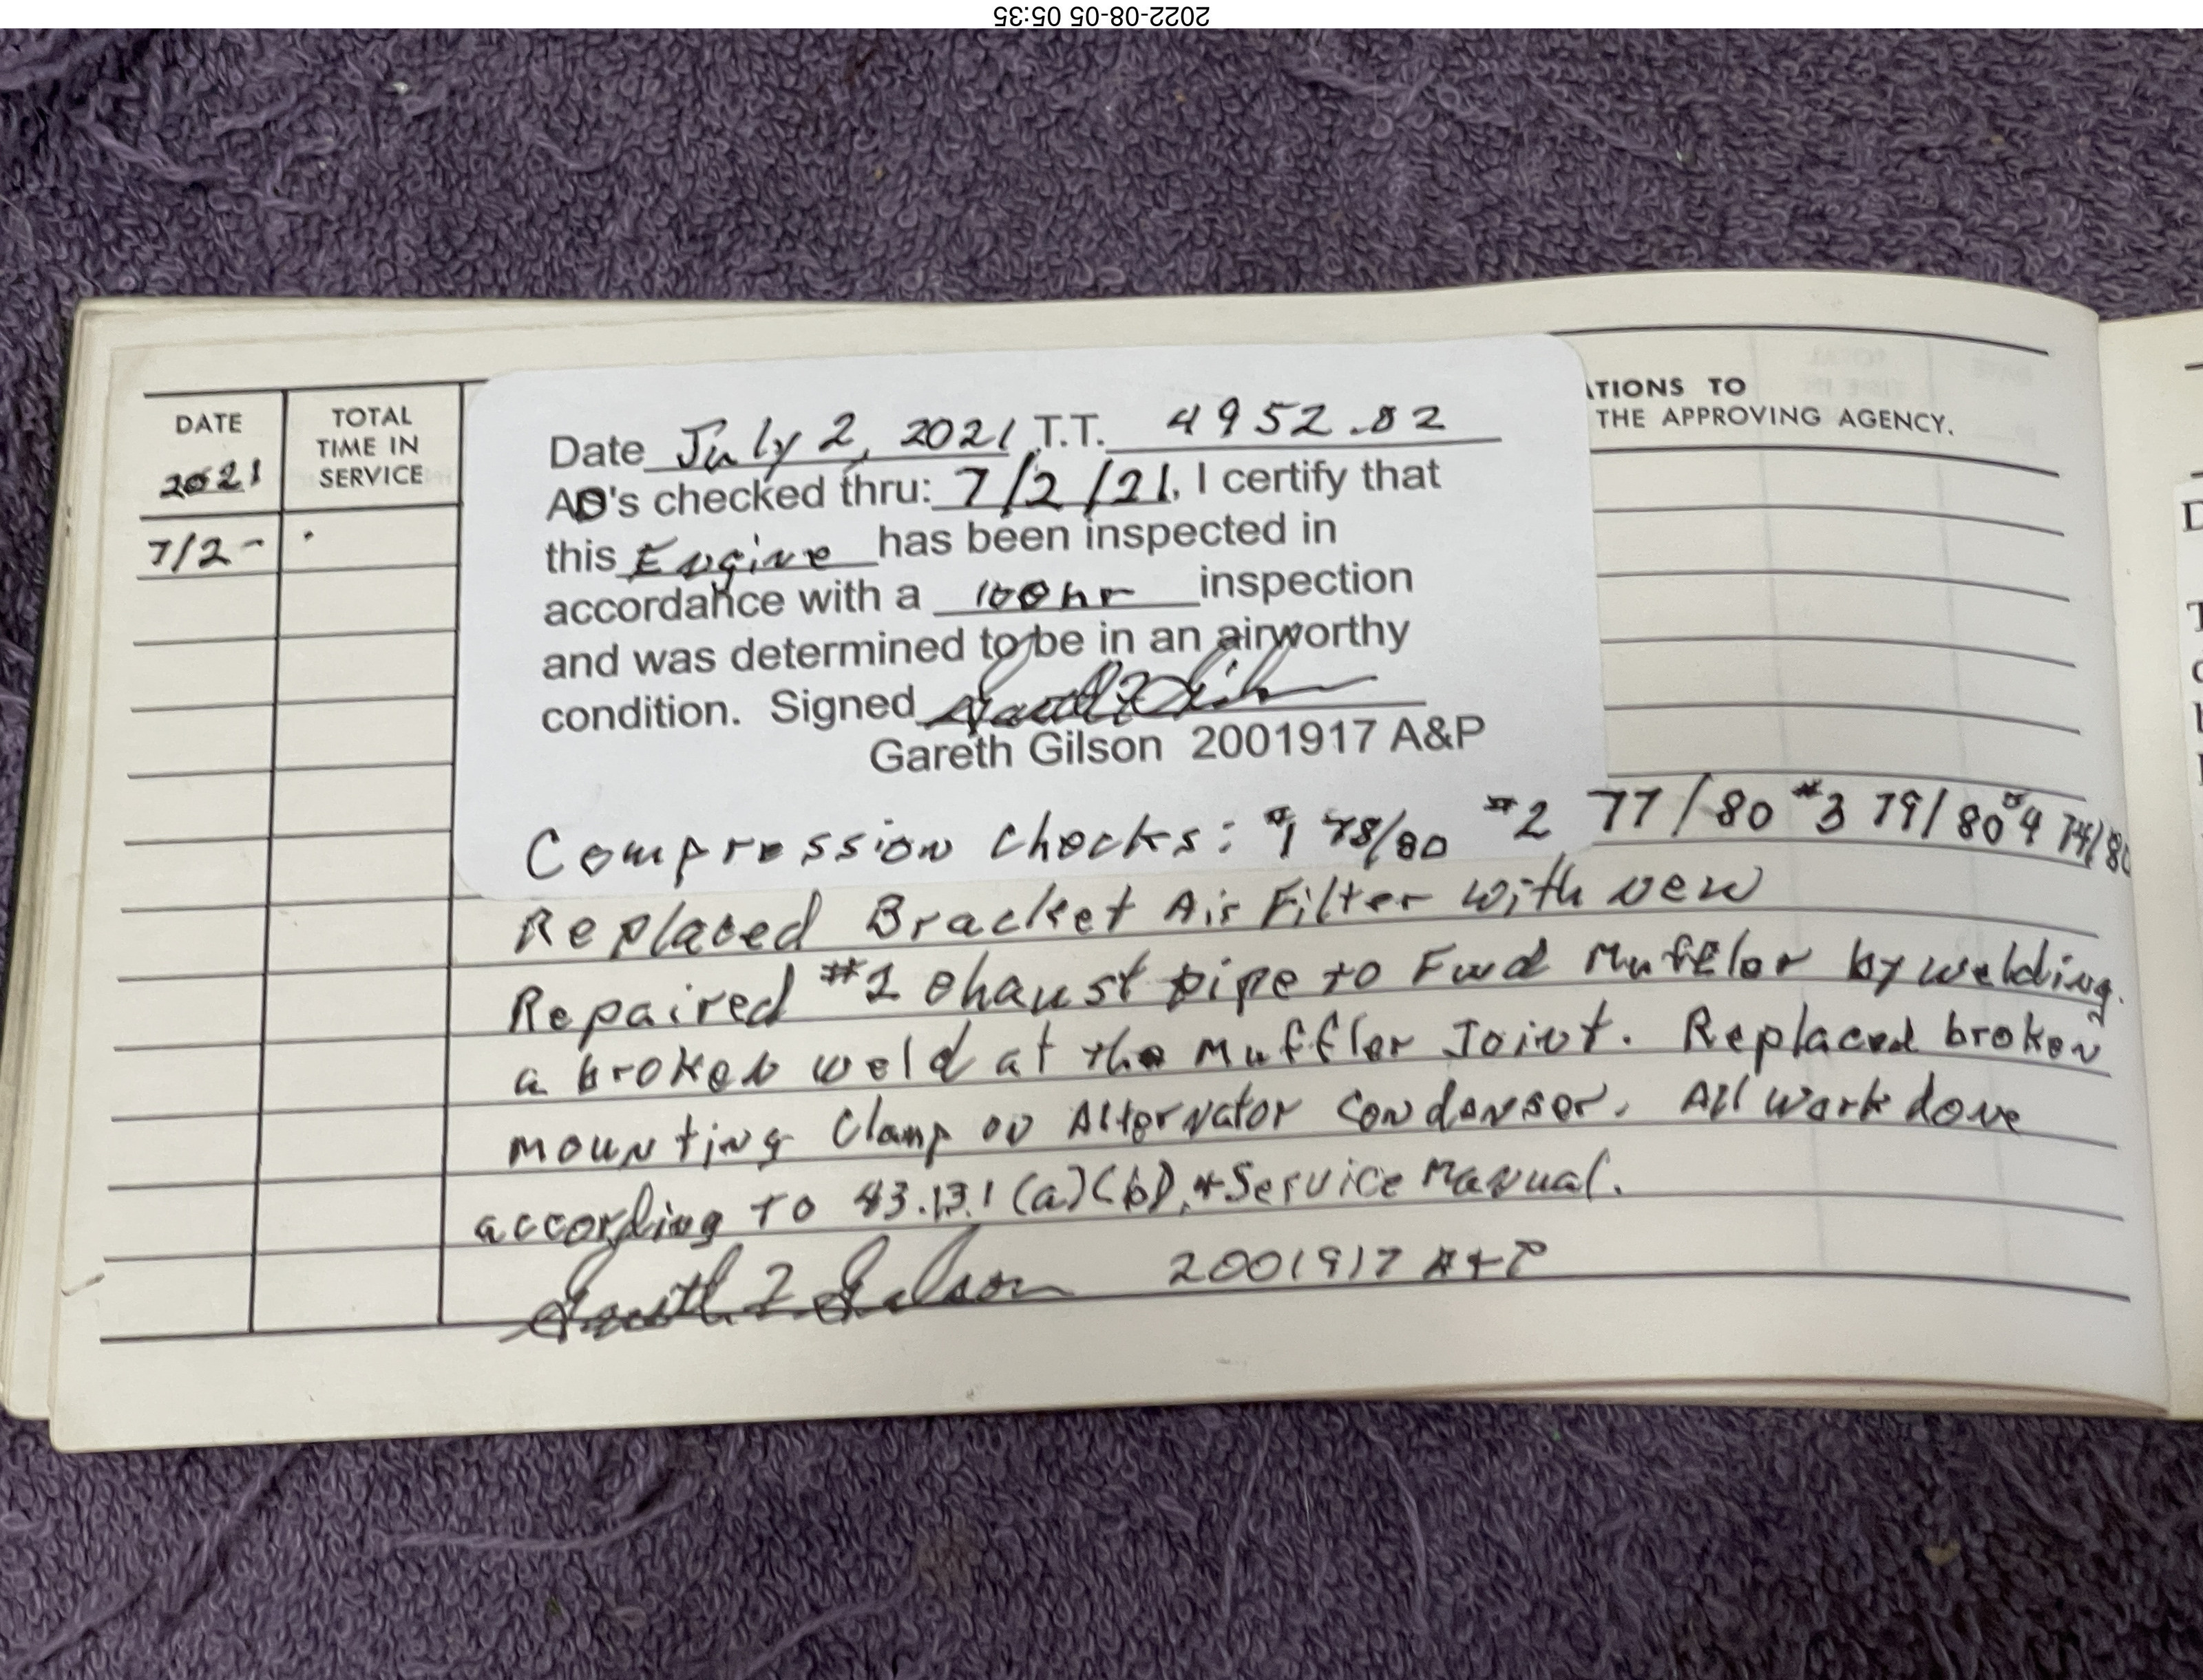 2022-08-05 05:35
ATIONS TO
THE APPROVING AGENCY.
DATE
2021
TOTAL
TIME IN
SERVICE
7/2-
Date July 2, 2021 T.T. 4952.82
AD's checked thru: 7/2/21, I certify that
this Engine has been inspected in
accordance with a 100hr inspection
and was determined to be in an airworthy
condition. Signed
Gareth Gilson 2001917 A&P
Compression Checks: #1 78/80 #2 77/80 #3 79/80 #4 74/80
Replaced Bracket Air Filter with new
Repaired #1 ehaust pipe to Fwd Muffler by welding.
a broken weld at the Muffler Joint. Replaced broken
mounting Clamp on Alternator Condenser. All work done
according to 43.13.1 (a)(b), + Service Manual.
Gareth Z Gilson 2001917 A+P